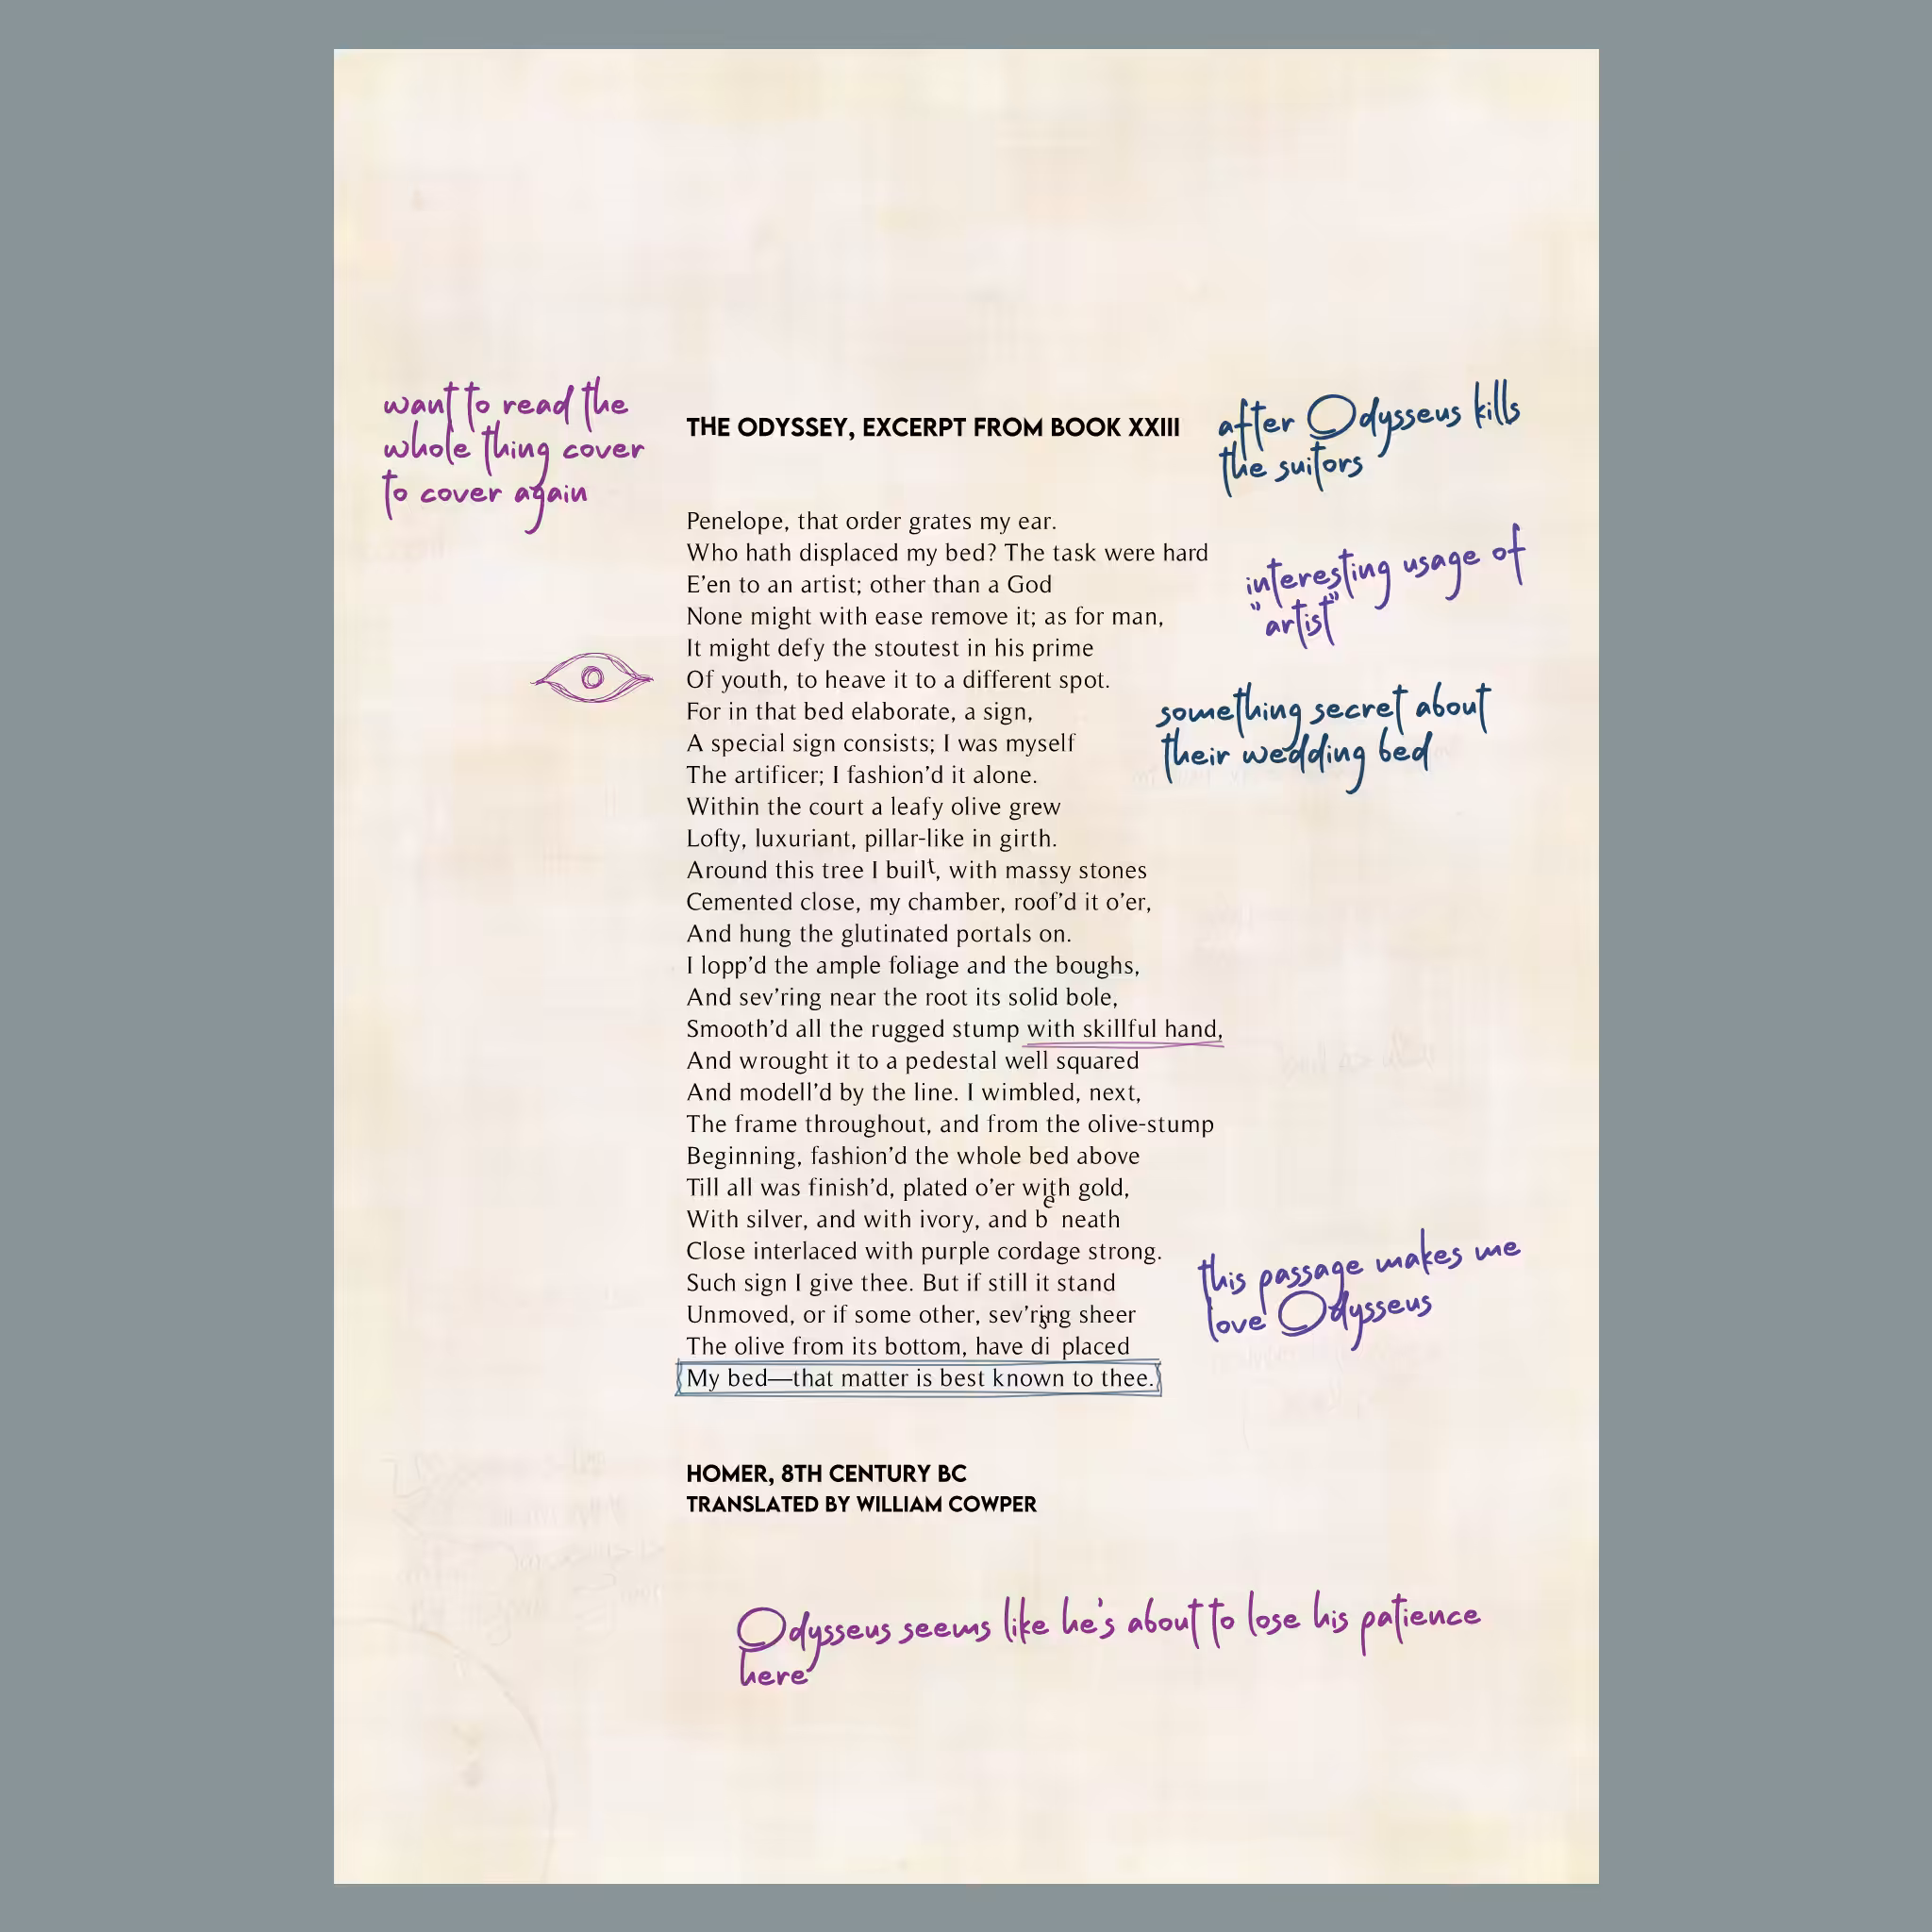 want to read the
whole thing cover
to cover again
THE ODYSSEY, EXCERPT FROM BOOK XXIII
after Odysseus kills
the suitors
Penelope, that order grates my ear.
Who hath displaced my bed? The task were hard
E’en to an artist; other than a God
None might with ease remove it; as for man,
It might defy the stoutest in his prime
Of youth, to heave it to a different spot.
For in that bed elaborate, a sign,
A special sign consists; I was myself
The artificer; I fashion’d it alone.
Within the court a leafy olive grew
Lofty, luxuriant, pillar-like in girth.
Around this tree I built, with massy stones
Cemented close, my chamber, roof’d it o’er,
And hung the glutinated portals on.
I lopp’d the ample foliage and the boughs,
And sev’ring near the root its solid bole,
Smooth’d all the rugged stump with skillful hand,
And wrought it to a pedestal well squared
And modell’d by the line. I wimbled, next,
The frame throughout, and from the olive-stump
Beginning, fashion’d the whole bed above
Till all was finish’d, plated o’er with gold,
With silver, and with ivory, and beneath
Close interlaced with purple cordage strong.
Such sign I give thee. But if still it stand
Unmoved, or if some other, sev’ring sheer
The olive from its bottom, have displaced
My bed—that matter is best known to thee.
interesting usage of
"artist"
something secret about
their wedding bed
this passage makes me
love Odysseus
HOMER, 8TH CENTURY BC
TRANSLATED BY WILLIAM COWPER
Odysseus seems like he's about to lose his patience
here